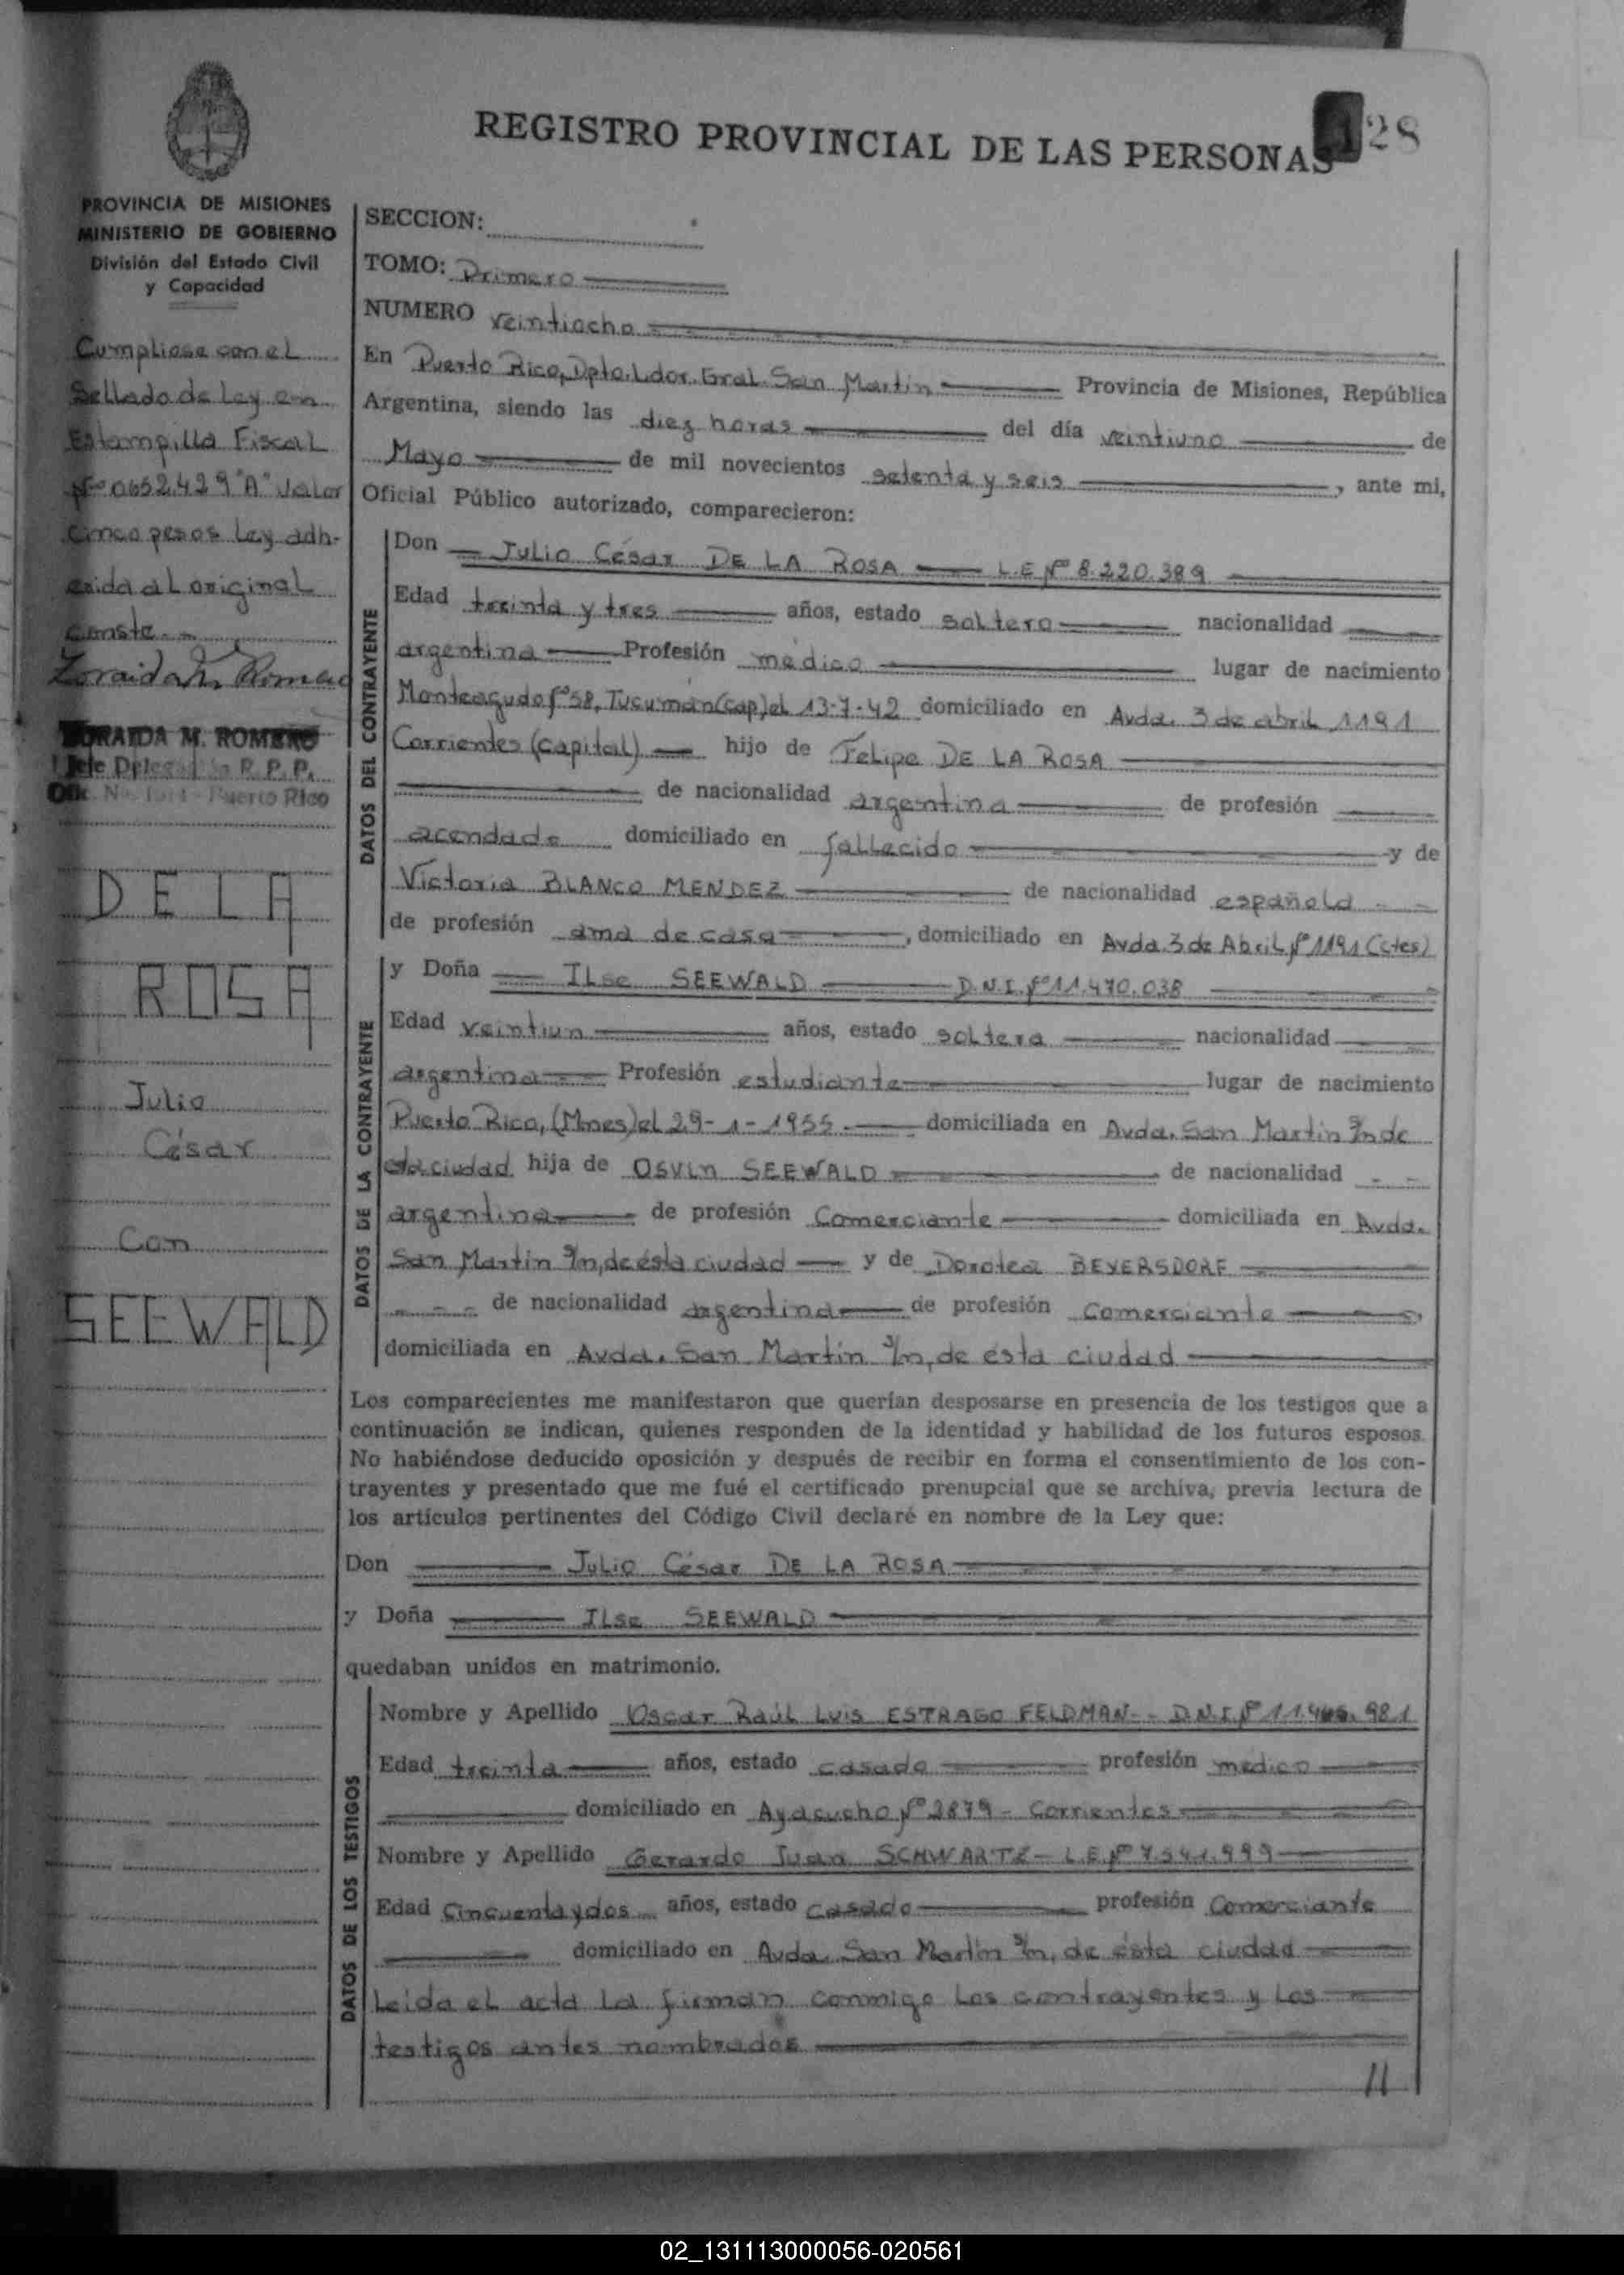 28
REGISTRO PROVINCIAL DE LAS PERSONAS
PROVINCIA DE MISIONES
MINISTERIO DE GOBIERNO
División del Estado Civil
y Capacidad
Cumpliose con el
Sellado de Ley en
Estampilla Fiscal
Nº 0652429 "A" Valor
Cinco pesos Ley adh-
erida al original
Conste.-
Zoraida M. Romero
ZORAIDA M. ROMERO
Jefe R. P. P.
Puerto Rico
DE LA
ROSA
Julio
César
Con
SEEWALD
SECCION:
TOMO: Primero
NUMERO veintiocho
En Puerto Rico, Dpto. Ldor. Gral. San Martín Provincia de Misiones, República
Argentina, siendo las diez horas del día veintiuno de
Mayo de mil novecientos setenta y seis, ante mi,
Oficial Público autorizado, comparecieron:
DATOS DEL CONTRAYENTE
Don Julio César DE LA ROSA L.E Nº 8.220.389
Edad treinta y tres años, estado soltero nacionalidad
argentina Profesión médico lugar de nacimiento
Monteagudo Nº 58, Tucumán (Cap) el 13-7-42 domiciliado en Avda. 3 de abril 1191
Corrientes (capital) hijo de Felipe DE LA ROSA
de nacionalidad argentina de profesión
acendado domiciliado en fallecido y de
Victoria BLANCO MENDEZ de nacionalidad española - -
de profesión ama de casa, domiciliado en Avda. 3 de Abril Nº 1191 (Ctes)
DATOS DE LA CONTRAYENTE
y Doña ILse SEEWALD D.N.I. Nº 11.470.038
Edad veintiun años, estado soltera nacionalidad
argentina Profesión estudiante lugar de nacimiento
Puerto Rico, (Mnes) el 29-1-1955.- domiciliada en Avda. San Martín s/n de
esta ciudad hija de OSVIN SEEWALD de nacionalidad - -
argentina de profesión Comerciante domiciliada en Avda.
San Martín s/n, de ésta ciudad y de Dorotea BEYERSDORF
- - - de nacionalidad argentina de profesión Comerciante
domiciliada en Avda. San Martín s/n, de ésta ciudad
Los comparecientes me manifestaron que querían desposarse en presencia de los testigos que a
continuación se indican, quienes responden de la identidad y habilidad de los futuros esposos.
No habiéndose deducido oposición y después de recibir en forma el consentimiento de los con-
trayentes y presentado que me fué el certificado prenupcial que se archiva, previa lectura de
los artículos pertinentes del Código Civil declaré en nombre de la Ley que:
Don Julio César DE LA ROSA
y Doña ILse SEEWALD
quedaban unidos en matrimonio.
DATOS DE LOS TESTIGOS
Nombre y Apellido Oscar Raúl Luis ESTRAGO FELDMAN-- D.N.I. Nº
Edad treinta años, estado casado profesión medico
domiciliado en Ayacucho Nº 2879 - Corrientes
Nombre y Apellido Gerardo Juan SCHWARTZ - L.E. Nº 7.541.999
Edad Cincuenta y dos años, estado casado profesión Comerciante
domiciliado en Avda. San Martín s/n, de ésta ciudad
Leída el acta la firman conmigo los contrayentes y los
testigos antes nombrados
//
02_131113000056-020561